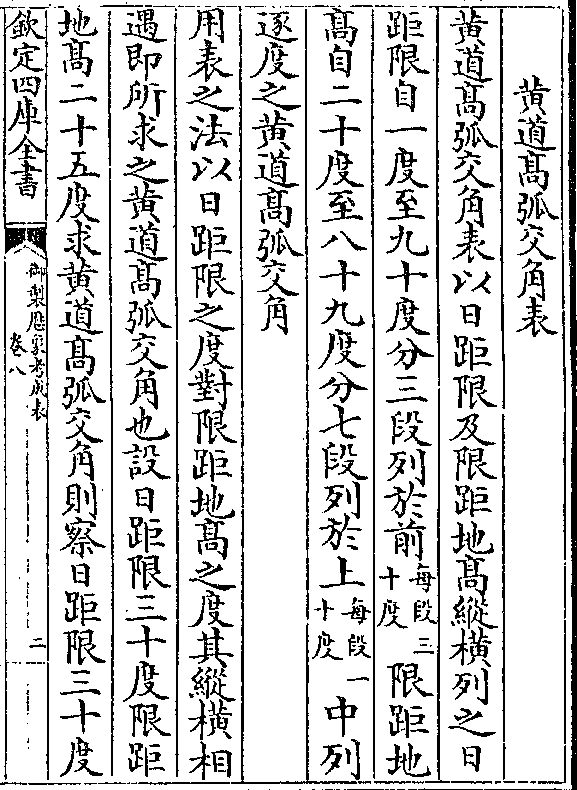 黄道髙弧交角表
黄道髙弧交角表以日距限及限距地髙縱横列之日
距限自一度至九十度分三段列於前每段三十度限距地
髙自二十度至八十九度分七段列於上每段一十度中列
逐度之黄道髙弧交角
用表之法以日距限之度對限距地髙之度其縱横相
遇即所求之黄道髙弧交角也設日距限三十度限距
地髙二十五度求黄道髙弧交角則察日距限三十度
欽定四庫全書
御製厯象考成表
卷八
二